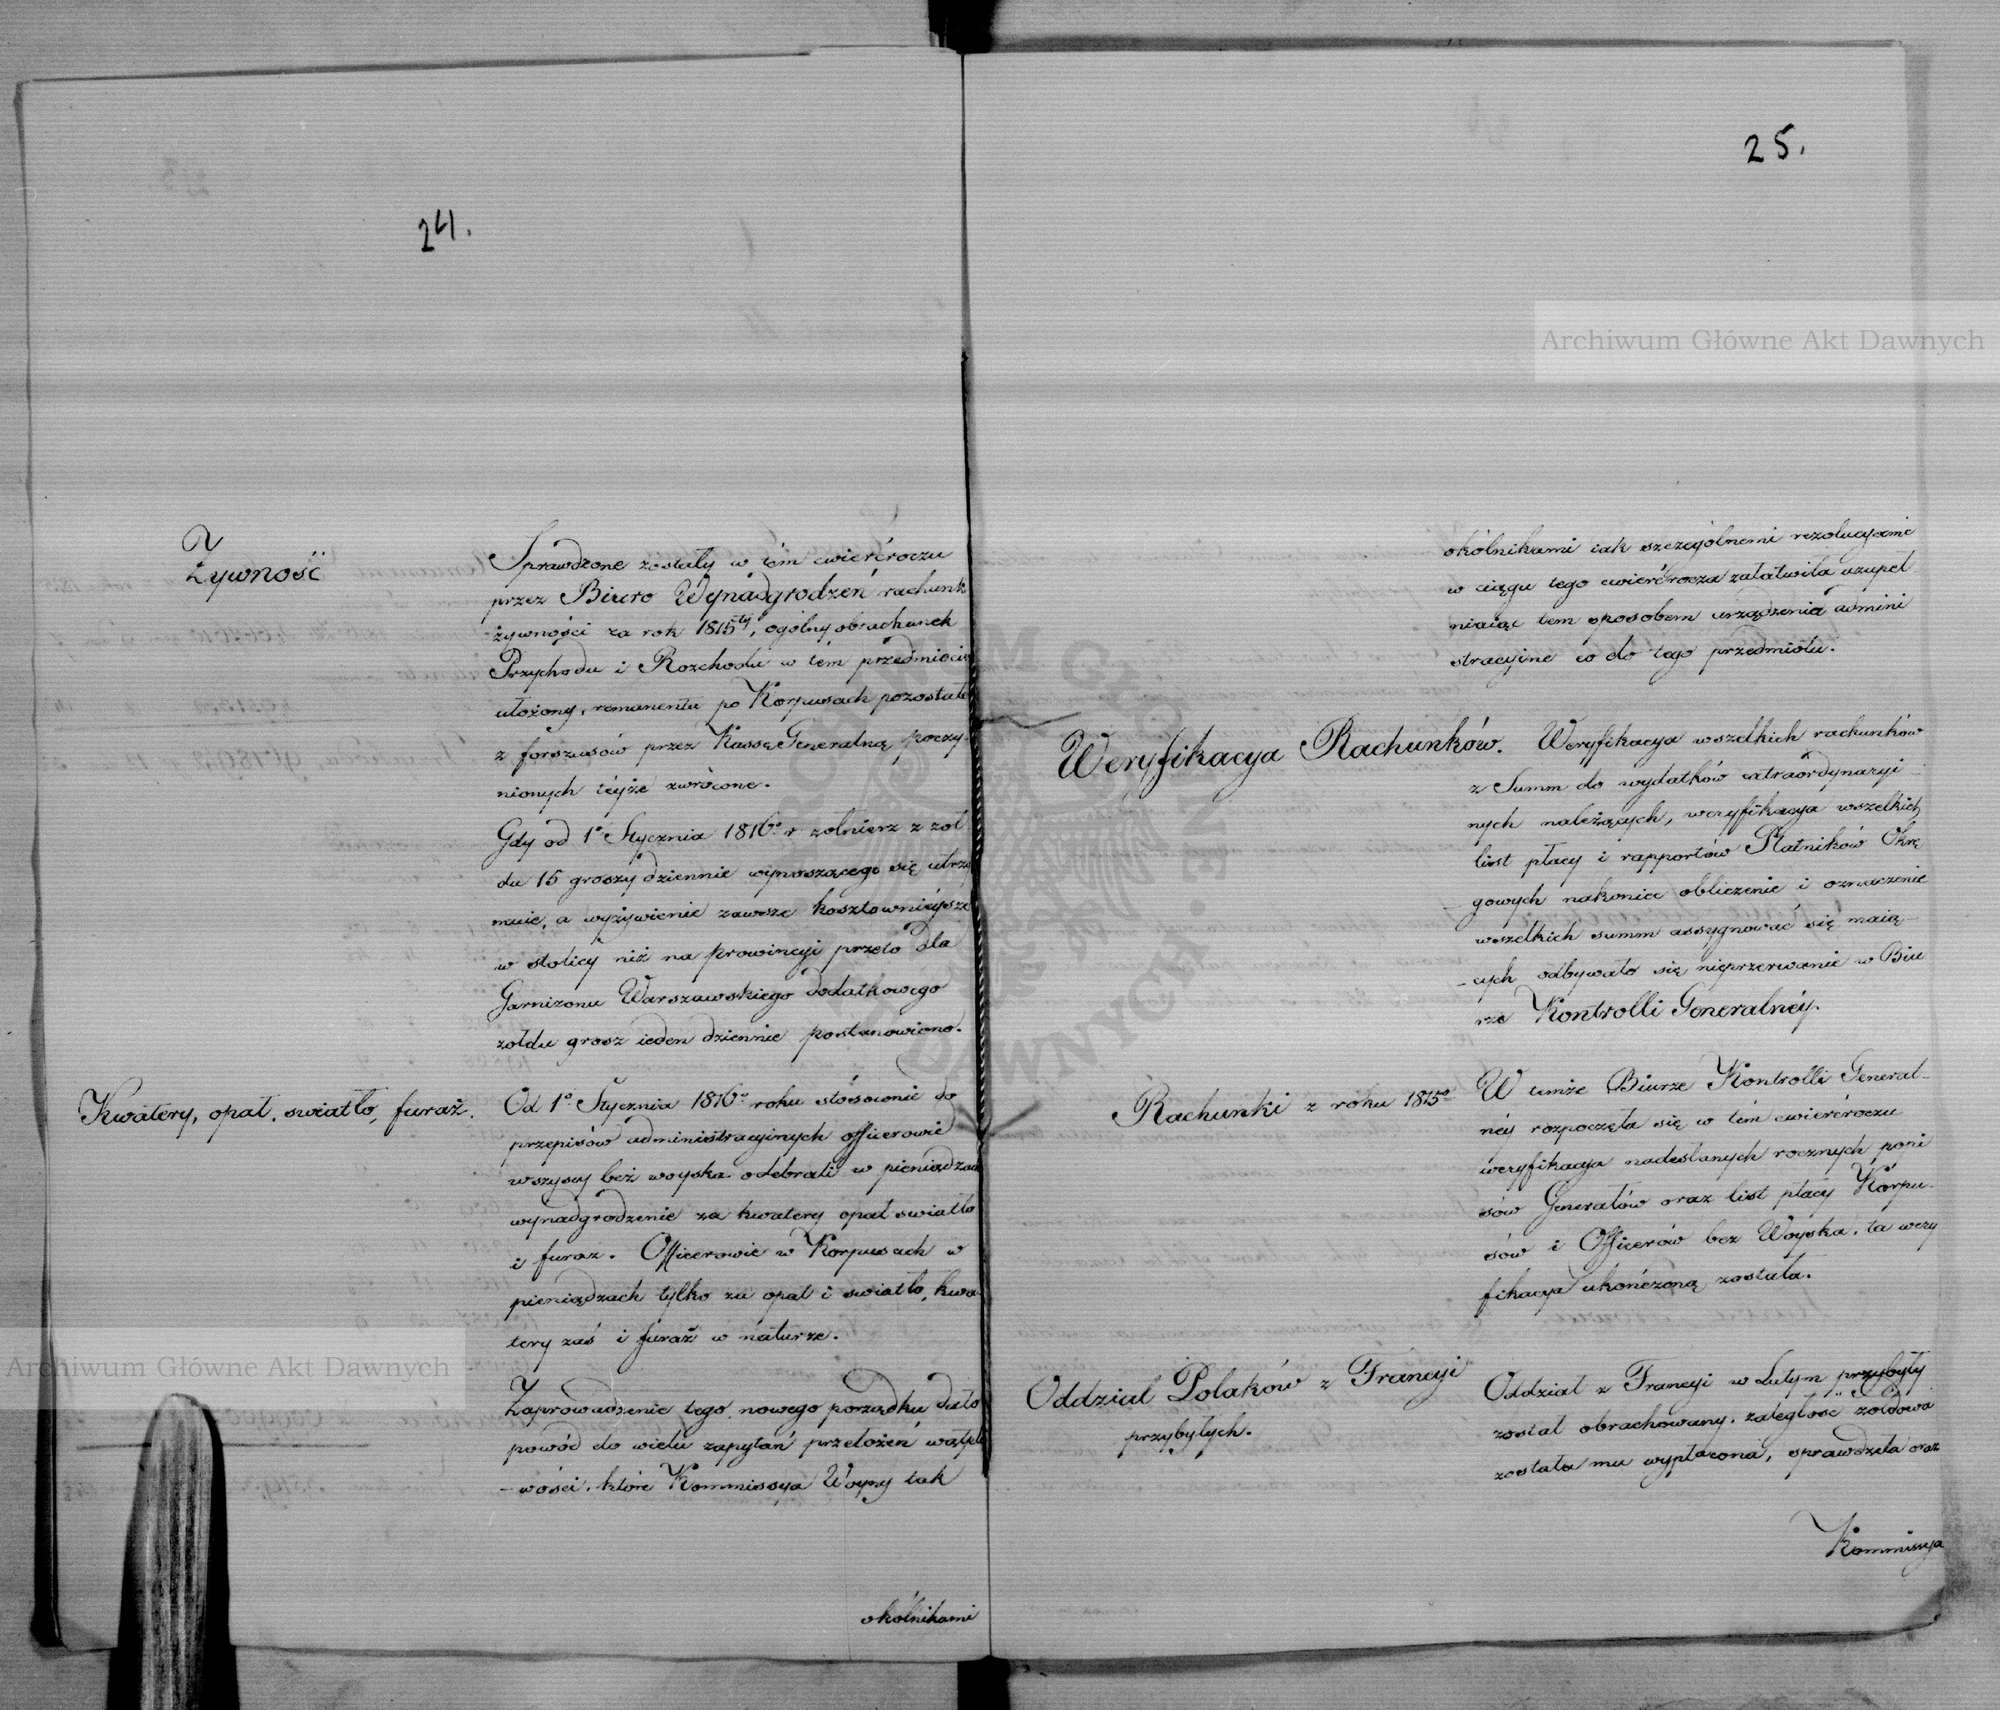 24.
Żywność
Sprawdzone zostały w tém cwierćroczu
przez Biuro Wynadgrodzeń rachunk
żywności za rok 1815ty, ogólny obrachunek
Przychodu i Rozchodu w tém przedmiocie
ułożony, remanentu po Korpusach pozostałe
z forszusów przez Kassę Generalną poczy-
nionych téyże zwrócone.
Gdy od 1o Stycznia 1816o r żołnierz z żoł
du 15 groszy dziennie wynoszącego się utrzy
muie, a wyżywienie zawsze kosztownieysze
w stolicy niż na prowincyi przeto dla
Garnizonu Warszawskiego dodatkowego
żołdu grosz ieden dziennie postanowiono.
Kwatery, opał, swiatło, furaż.
Od 1o Stycznia 1816o roku stósownie do
przepisów administracyinych officerowie
wszyscy bez woyska odebrali w pieniądzach
wynadgrodzenie za kwatery opał swiatło
i furaż. Officerowie w Korpusach w
pieniądzach tylko za opał i swiatło, kwa
tery zaś i furaż w naturze.
Zaprowadzenie tego nowego porządku dało
powód do wielu zapytań przełożeń wątpli
-wości, które Kommissya Woyny tak
okólnikami
25.
okólnikami iak szczególnemi rezolucyami
w ciągu tego cwierćrocza załatwiła uzupeł
niaiąc tem sposobem urządzenia admini
stracyine co do tego przedmiotu.
Weryfikacya Rachunków.
Weryfikacya wszelkich rachunków
z Summ do wydatków extraordynaryi-
nych należących, weryfikacya wszelkich
list płacy i rapportów Płatników Okrę
-gowych nakoniec obliczenie i oznaczenie
wszelkich summ assygnować się maią-
-cych odbywało się nieprzerwanie w Biu
rze Kontrolli Generalnéy.
Rachunki z roku 1815go
W temże Biurze Kontrolli General-
néy rozpoczęta się w tém cwierćroczu
weryfikacya nadesłanych rocznych popi
sów Generałów oraz list płacy Korpu-
sów i Officerów bez Woyska, ta wery
fikacya ukończoną została.
Oddział Polaków z Francyi
przybyłych.
Oddział z Francyi w Lutym przybyły
został obrachowany, zaległość żołdowa
została mu wypłacona, sprawdziła oraz
Kommissya
Archiwum Główne Akt Dawnych
Archiwum Główne Akt Dawnych